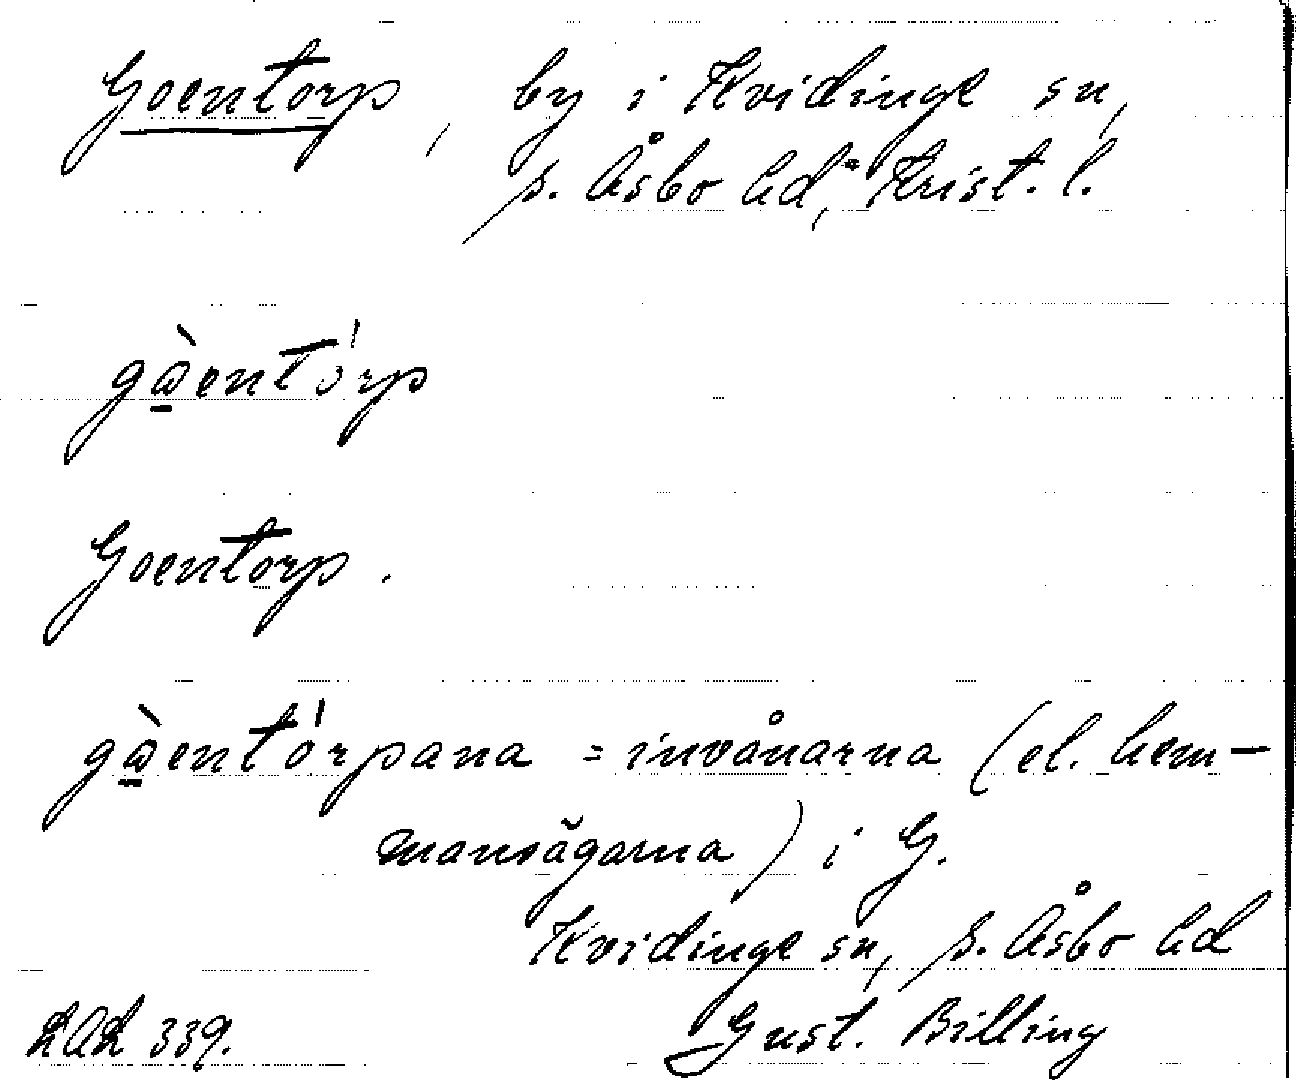 Goentorp, by i Kvidinge sn,
s. Åsbo hd, Krist. l.
gὼ̠entórp
Goentorp.
gὼ̠entórpana = invånarna (el. hem-
mansägarna) i G.
Kvidinge sn, s. Åsbo hd
LAL 339.
Gust. Billing